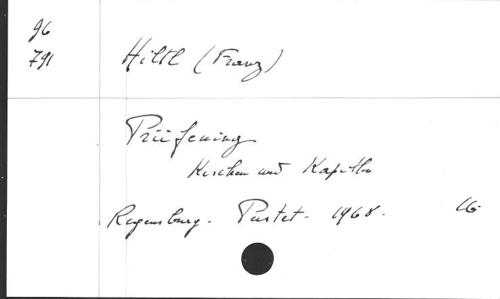 96
791
Hiltl (Franz)
Prüfening
Kirchen und Kapellen
Regensburg. Pustet. 1968.